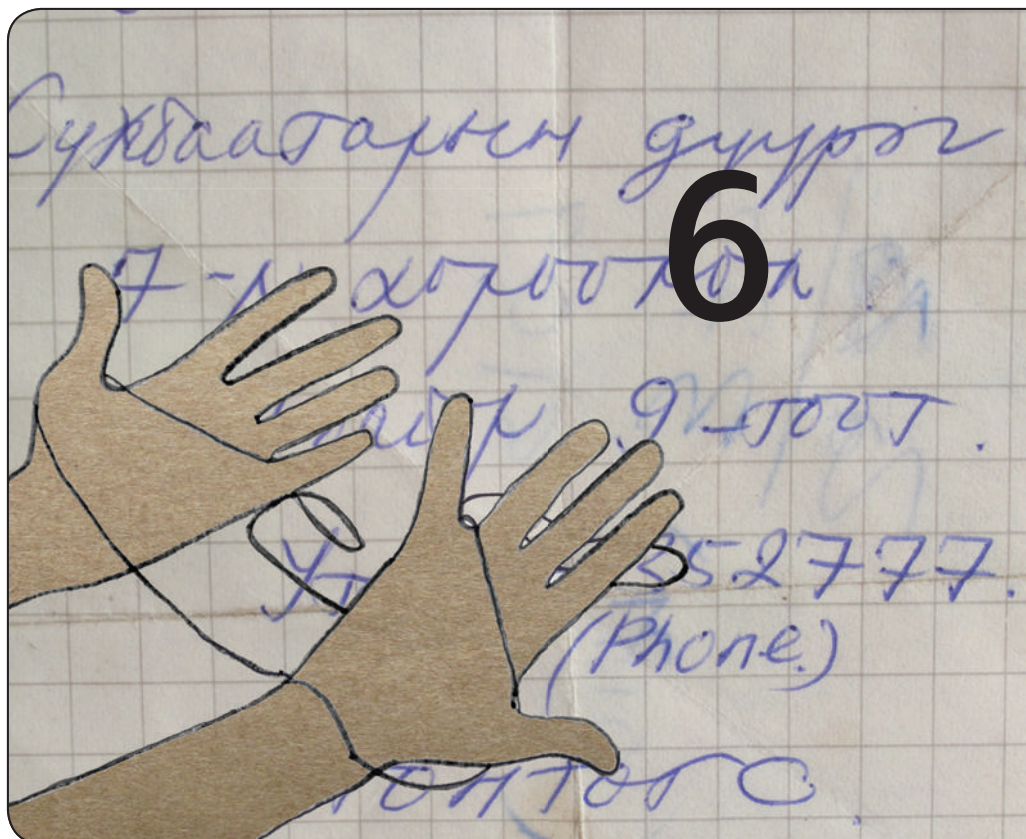 Сүхбаатарын дүүрэг
6
7-р хороолол
байр. 9-тоот.
Ут 352777.
(Phone.)